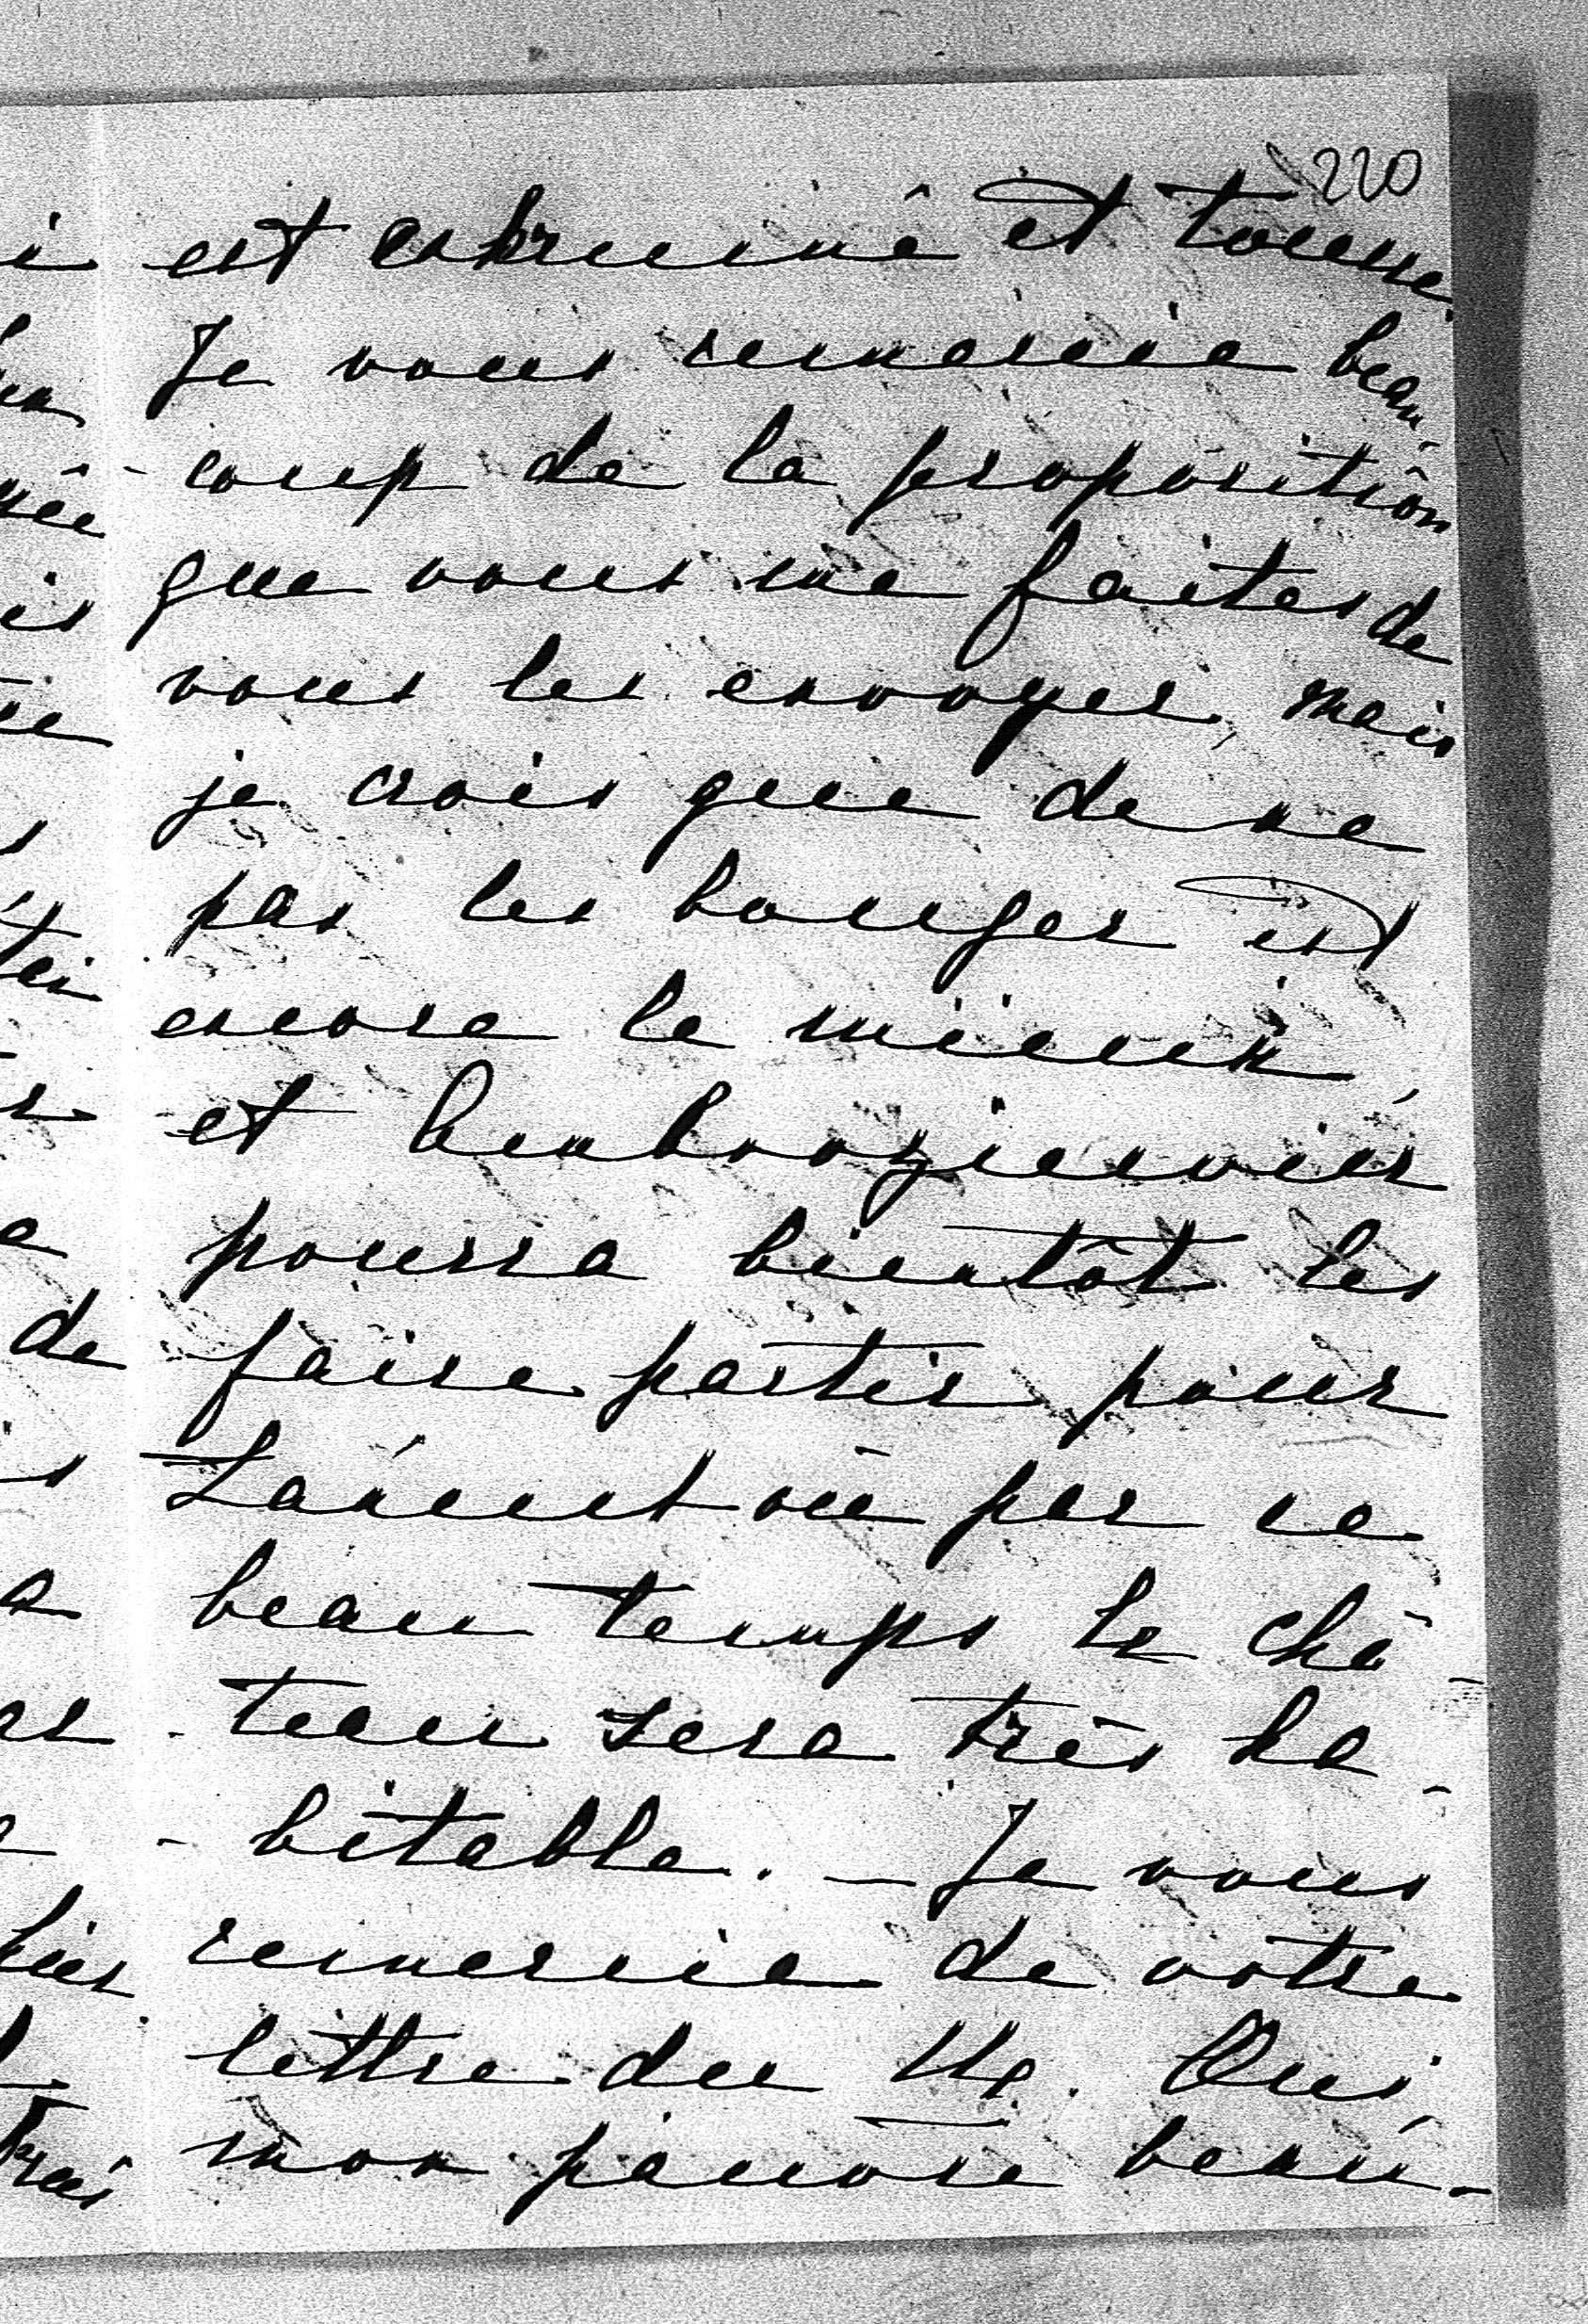 220
est enrhumé et tousse.
Je vous remercie beau-
-coup de la proposition
que vous me faites de
vous les envoyer, mais
je crois que de ne
pas les bouger est
encore le mieux,
et
pourra bientôt les
faire partir pour
par ce
beau temps le châ-
-teau sera très ha-
-bitable. — Je vous
remercie de votre
lettre du Oui
mon pauvre beau-